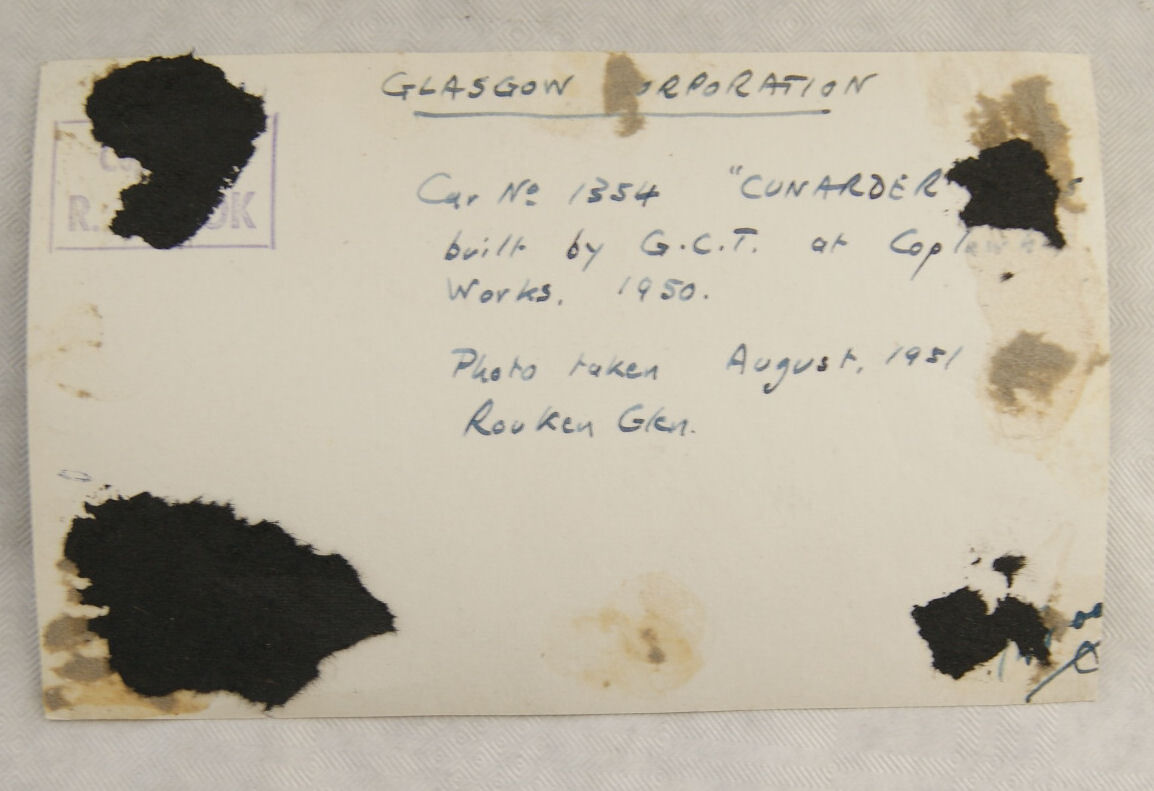 GLASGOW CORPORATION
Car No 1354 "CUNARDER"
built by G.C.T. at Coplawhill
Works. 1950.
Photo taken August, 1951
Rouken Glen.